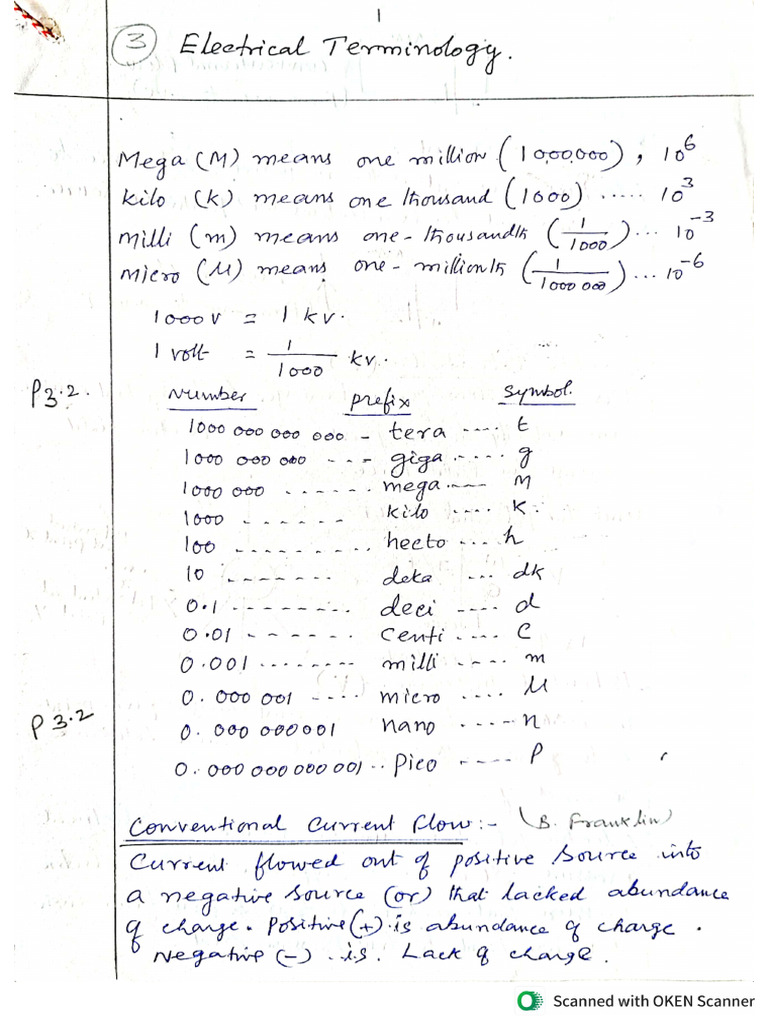 1
3 Electrical Terminology.
Mega (M) means one million (1000,000), 10⁶
kilo (k) means one thousand (1000) ..... 10³
milli (m) means one-thousandth (1/1000)... 10⁻³
micro (μ) means one-millionth (1/1000 000)... 10⁻⁶
1000v = 1 kv.
1 volt = 1/1000 kv.
P3.2. Number prefix Symbol.
1000 000 000 000 - tera .... t
1000 000 000 --- giga ..... g
1000 000 ...... mega ---- M
1000 ...... kilo .... k.
100 ........ hecto ... h
10 ........ deka ... dk
0.1 -------- deci ---- d
0.01 ------ centi .... c
0.001 ........ milli .... m
0.000 001 .... micro .... μ
P 3.2
0.000 000001 nano ..... n
0.000 000 000 001 .. pico ---- p
Conventional Current Flow:- (B. Franklin)
Current flowed out of positive source into
a negative source (or) that lacked abundance
of charge. Positive (+) is abundance of charge.
Negative (-) . is. Lack of charge.
Scanned with OKEN Scanner